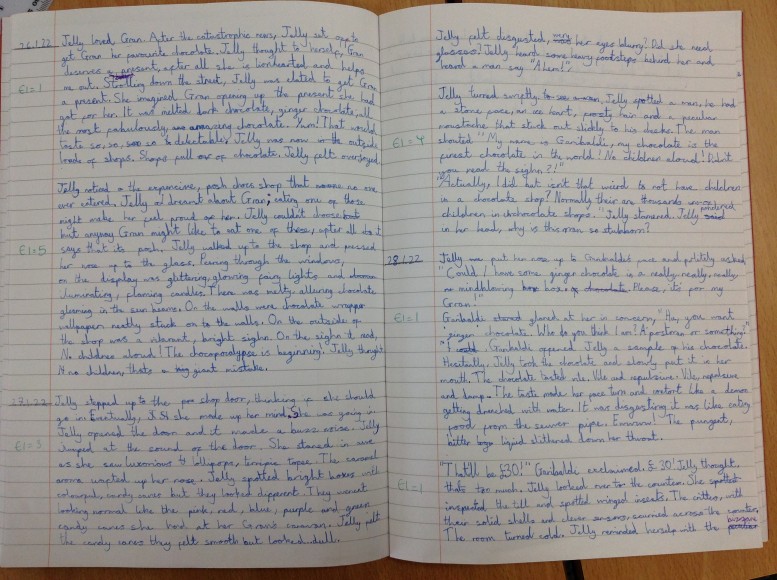 26.1.22 Jelly loved, Gran. After the catastrophic news, Jelly set off to
get Gran her favourite chocolate. Jelly thought to herself, Gran
deserves a present, after all she is kindhearted and helps
EI=1 me out. Strolling down the street, Jelly was elated to get Gran
a present. She imagined Gran opening up the present she had
got for her. It was melted dark chocolate, ginger chocolate, all
the most fabulously, amazing chocolate. Yum! That would
taste so, so, so delectable. Jelly was now on the outside
loads of shops. Shops full of chocolate. Jelly felt overjoyed.
Jelly noticed the expensive, posh choc shop that no one
ever entered. Jelly dreamt about Gran; eating one of those
might make her feel proud of her. Jelly couldn't choose but
but anyway Gran might like to eat one of these, after all it
EI=5 says that its posh. Jelly walked up to the shop and pressed
her nose up to the glass. Peering through the windows,
on the display was glittering, glowing fairy lights and
luminating, flaming candles. There was melty alluring chocolate
gleaming in the sun beams. On the walls were chocolate wrapper
wallpaper neatly stuck on to the walls. On the outside of
the shop was a vibrant, bright sighn. On the sighn it read,
No children aloud! The chocopocalypse is beginning! Jelly thought
no children, thats a giant mistake.
28.1.22 Jelly stepped up to the shop door, thinking if she should
go in. Eventually, she made up her mind. She was going in.
Jelly opened the door and it made a buzz noise. Jelly
EI=3 jumped at the sound of the door. She stared in awe
as she saw luxorious lollypops, terrific topee. The sweet
aroma wafted up her nose. Jelly spotted bright boxes with
colourful, candy canes but they looked different. They werent
looking normal like the pink, red, blue, purple and green
candy canes she had at her Gran's caravan. Jelly felt
the candy canes they felt smooth but looked dull.
Jelly felt disgusted, were her eyes blurry? Did she need
glasses? Jelly heard some heavy footsteps behind her and
heard a man say "Ahem!"
Jelly turned swiftly, Jelly spotted a man, he had
a stone face, an ice heart, frosty hair and a peculiar
moustache that stuck out slickly to his cheeks. The man
EI=4 shouted "My name is Garibaldi, my chocolate is the
finest chocolate in the world! No children aloud! Didn't
you read the sighn?!"
"Actually, I did but isn't that wierd to not have children
in a chocolate shop? Normally their are thousands
children in chocolate shops." Jelly stamered. Jelly pondered
in her head, why is this man so stubborn?
28.1.22 Jelly put her nose up to Garibaldi's face and politely asked,
"Could I have some ginger chocolate in a really, really, really
mindblowing box. Please, its for my
Gran!"
EI=1 Garibaldi glared at her in concern, "Ha, you want
ginger chocolate! Who do you think I am? A postman or something!"
Garibaldi offered Jelly a sample of his chocolate.
Hesitantly, Jelly took the chocolate and slowly put it in her
mouth. The chocolate tasted vile. Vile and repulsive. Vile, repulsive
and damp. The taste made her face turn and contort like a demon
getting drenched with water. It was disgusting it was like eating
food from the sewer pipe. Ewwww! The pungent,
bitter liqid slithered down her throat.
"That'll be £30!" Garibaldi exclaimed. £30! Jelly thought,
EI=1 thats too much. Jelly looked over to the counter. She
inspected the till and spotted winged insects. The critters, with
their solid shells and clever sensors, scurried across the counter.
The room turned cold. Jelly reminded herself with the